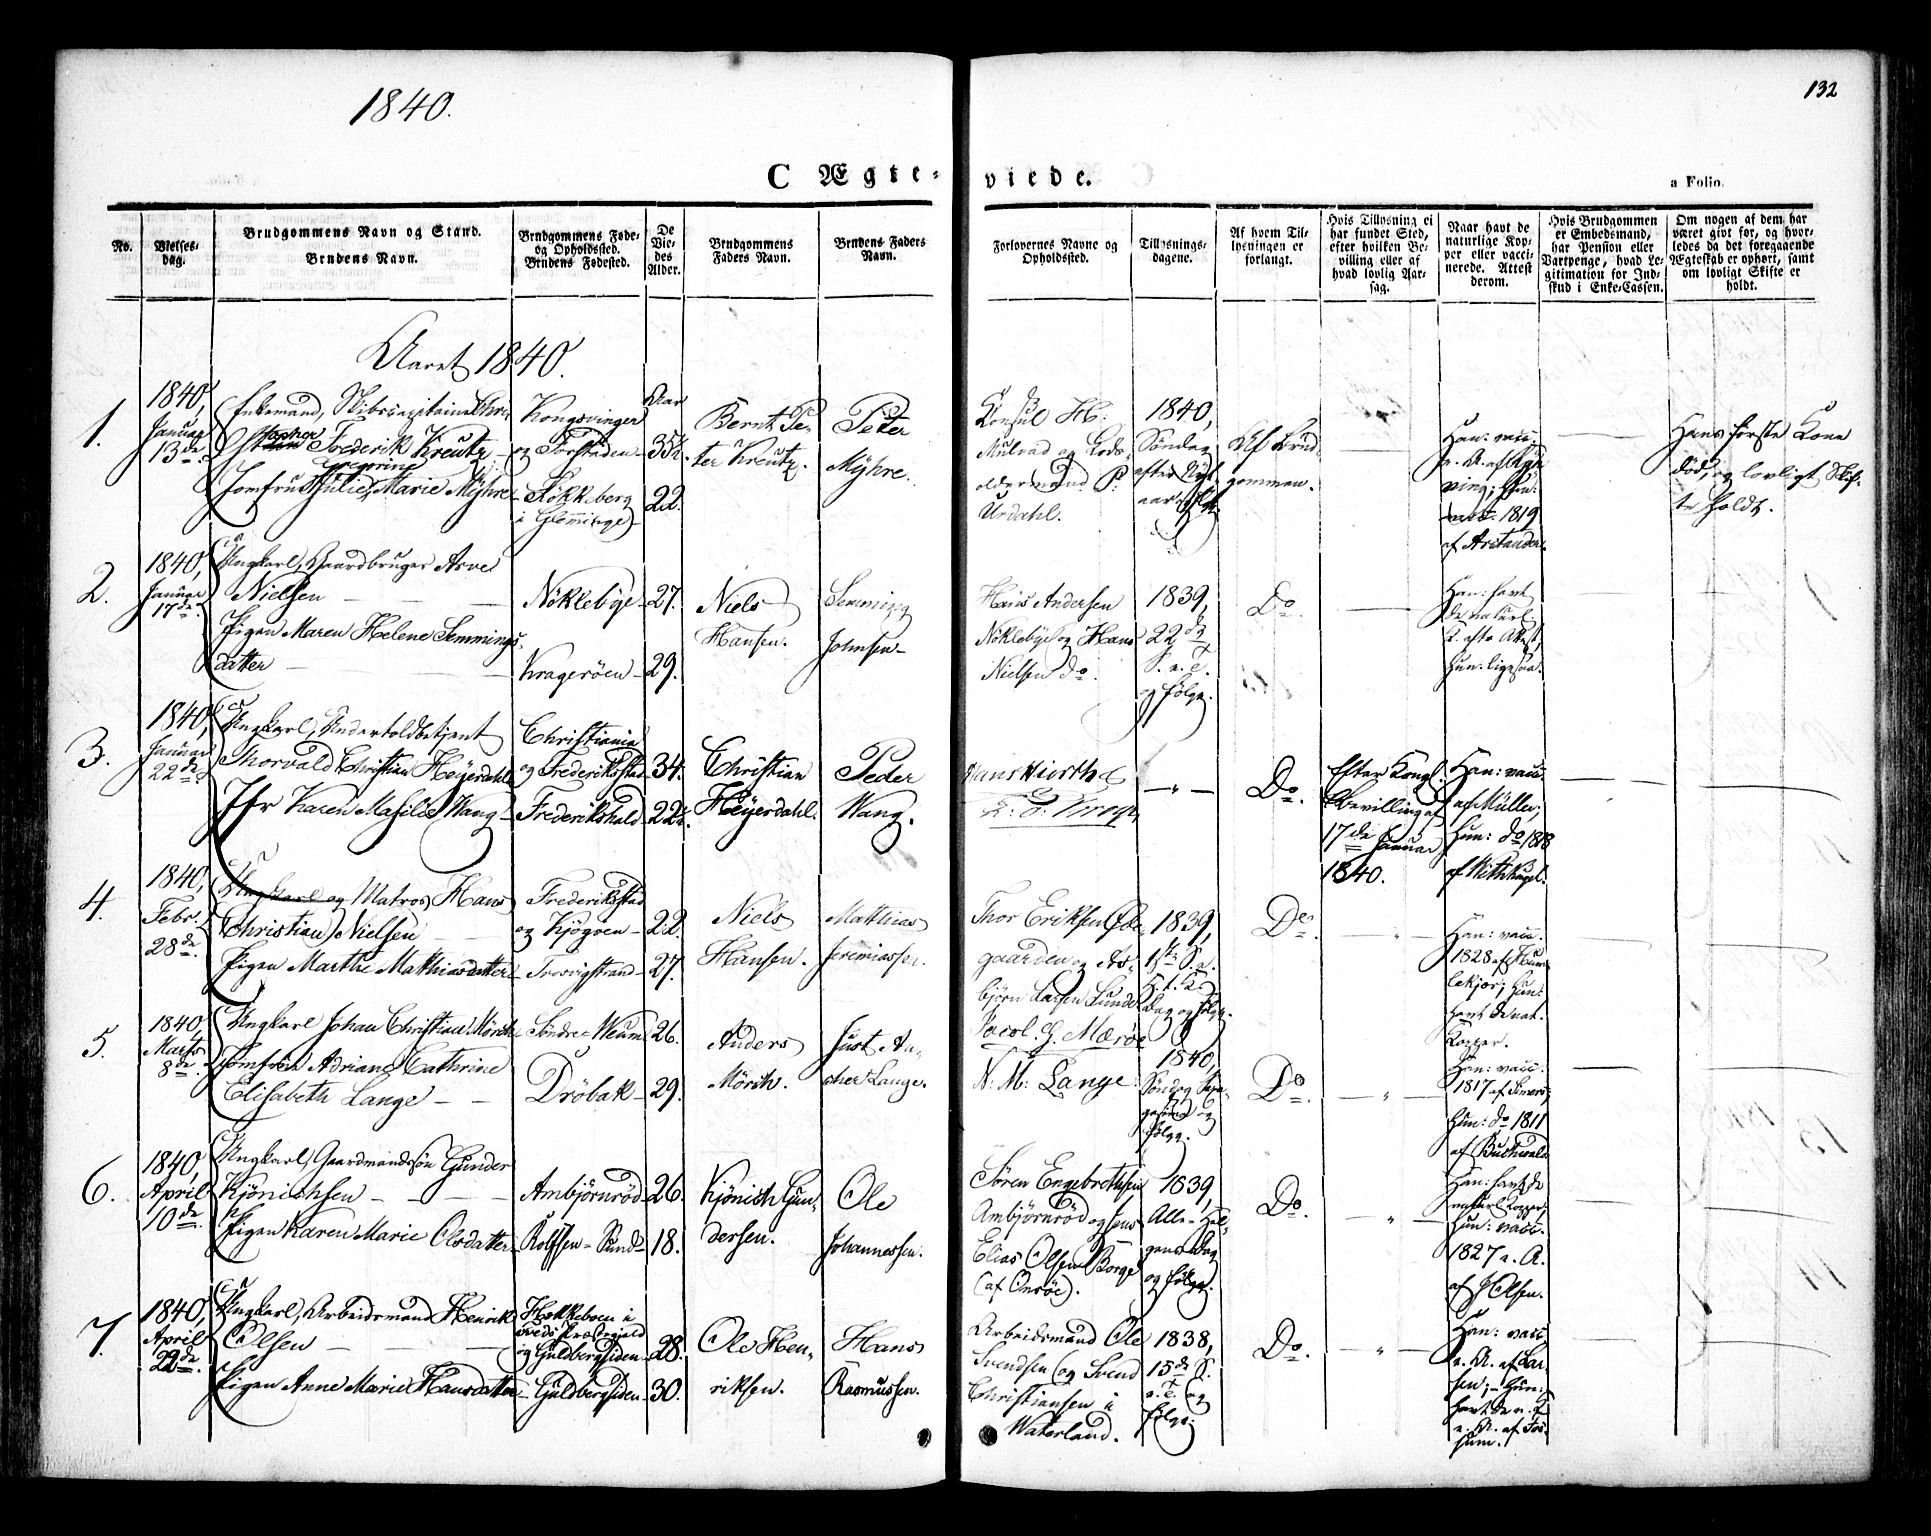 1840.
132
C Ægte-
viede.
a Folio.
No.
Vielses-
dag.
Brudgommens Navn og Stand.
Brudens Navn.
Brudgommens Føde-
og Opholdssted.
Brudens Fødested.
De
Vie-
des
Alder.
Brudgommens
Faders Navn.
Brudens Faders
Navn.
Forlovernes Navne og
Opholdssted.
Tillysnings-
dagene.
Af hvem Til-
lysningen er
forlangt.
Hvis Tillysning ei
har fundet Sted,
efter hvilken Be-
villing eller af
hvad lovlig Aar-
sag.
Naar havt de
naturlige Kop-
per eller vacci-
nerede. Attest
derom.
Hvis Brudgommen
er Embedsmand,
har Pension eller
Vartpenge, hvad Le-
gitimation for Ind-
skud i Enke-Cassen.
Om nogen af dem har
været givt for, og hvor-
ledes da det foregaaende
Ægteskab er ophørt, samt
om lovligt Skifte er
holdt.
Aaret 1840.
1.
1840,
Januar
13de
Enkemand, Skibscapitaine Chri
Frederik Kreutz
Gregorine
Jomfru Julie Marie Myhre
Kongsvinger
og Forstaden
Kökkeberg
i Glemminge
Aar
35½.
22.
Bernt Pe-
ter Kreutz.
Peter
Myhre.
Consul H:
Mulvad og Lods-
oldermand P:
Urdahl.
1840,
Søndag
efter Nyt-
aar
Af Brud-
gommen.
Han: vacc.
ving; Hun:
1819
Hans første Kone
død, og lovligt Skif-
te holdt.
2.
1840,
Januar
17de
Ungkarl, Gaardbruger Arve
Nielsen
Pigen Maren Helene Semmings-
datter
Nöklebye
Kragerøen
27.
29.
Niels
Hansen.
Semming
Johnsen
Hans Andersen
Nöklebye og Hans
Nielsen do.
1839,
22de
S. a. T.
og følge.
Do.
Han: havt
de naturl.
K. efter Attest,
Hun: ligesaa.
3.
1840,
Januar
22de
Ungkarl, Undertoldbetjent
Thorvald Christian Heyerdahl
Jfr Karen Wang
Christiania
og Frederikstad
Frederikshald
34.
22½.
Christian
Heyerdahl.
Peder
Wang.
Hans Hiorth
"
Do.
Efter Kongl.
Bevilling af
17de Januar
1840.
Han: vacc.
af Müller;
Hun: do 1818
4.
1840,
Febr.
28de
Ungkarl og Matros Hans
Christian Nielsen
Pigen Marthe Mathiasdatter
Frederikstad
og Kjøgøen
Trosvigstrand
22.
27.
Niels
Hansen.
Matthias
Jeremiassen.
Thor Eriksen
gaarden og As-
bjørn Larsen Lunde
1839,
1ste S. a.
Dag og følge.
Do.
"
Han: vacc.
1828 af Hum-
lekjær; Hun:
havt de nat.
Kopper.
5.
1840,
Marts
8de
Ungkarl Johan Christian Mörch
Jomfru Adriane Cathrine
Elisabeth Lange
Søndre Weum
Dröbak
26.
29.
Anders
Mörch.
Just An-
cher Lange.
Jacob G. Mærøe
N. M. Lange
1840,
Søndag
og
følge.
Do.
"
Han: vacc.
1817
Hun: do 1811
af Buchwald
6.
1840,
April
10de
Ungkarl, Gaardmandssøn Gunder
Kjönichsen
Pigen Karen Marie Olsdatter
Ambjörnröd
Rolfsen-Sund
26.
18.
Kjönich Gun-
dersen.
Ole
Johannessen.
Søren Engebretsen
Ambjörnröd og
Elias Olsen Borge
(af Onsöe).
1839,
Alle-Hel-
gens Dag
og følge.
Do.
"
Han: havt de
naturl. Kopper;
Hun: vacc.
1827 e. A.
af J Olsen.
7.
1840,
April
22de
Ungkarl, Arbeidsmand Henrik
Olsen
Pigen Anne Marie Hansdatter
i
Præstegjeld
og Guldbergsiden
Guldbergsiden
28.
30.
Ole Hen-
riksen.
Hans
Rasmussen.
Arbeidsmand Ole
Svendsen og Svend
Christiansen i
Waterland.
1838,
15de S.
a. T. og
følge.
Do.
"
Han: vacc.
e. A. af Lar-
sen; Hun:
havt de n. K.
e. A. af Fos-
hum.